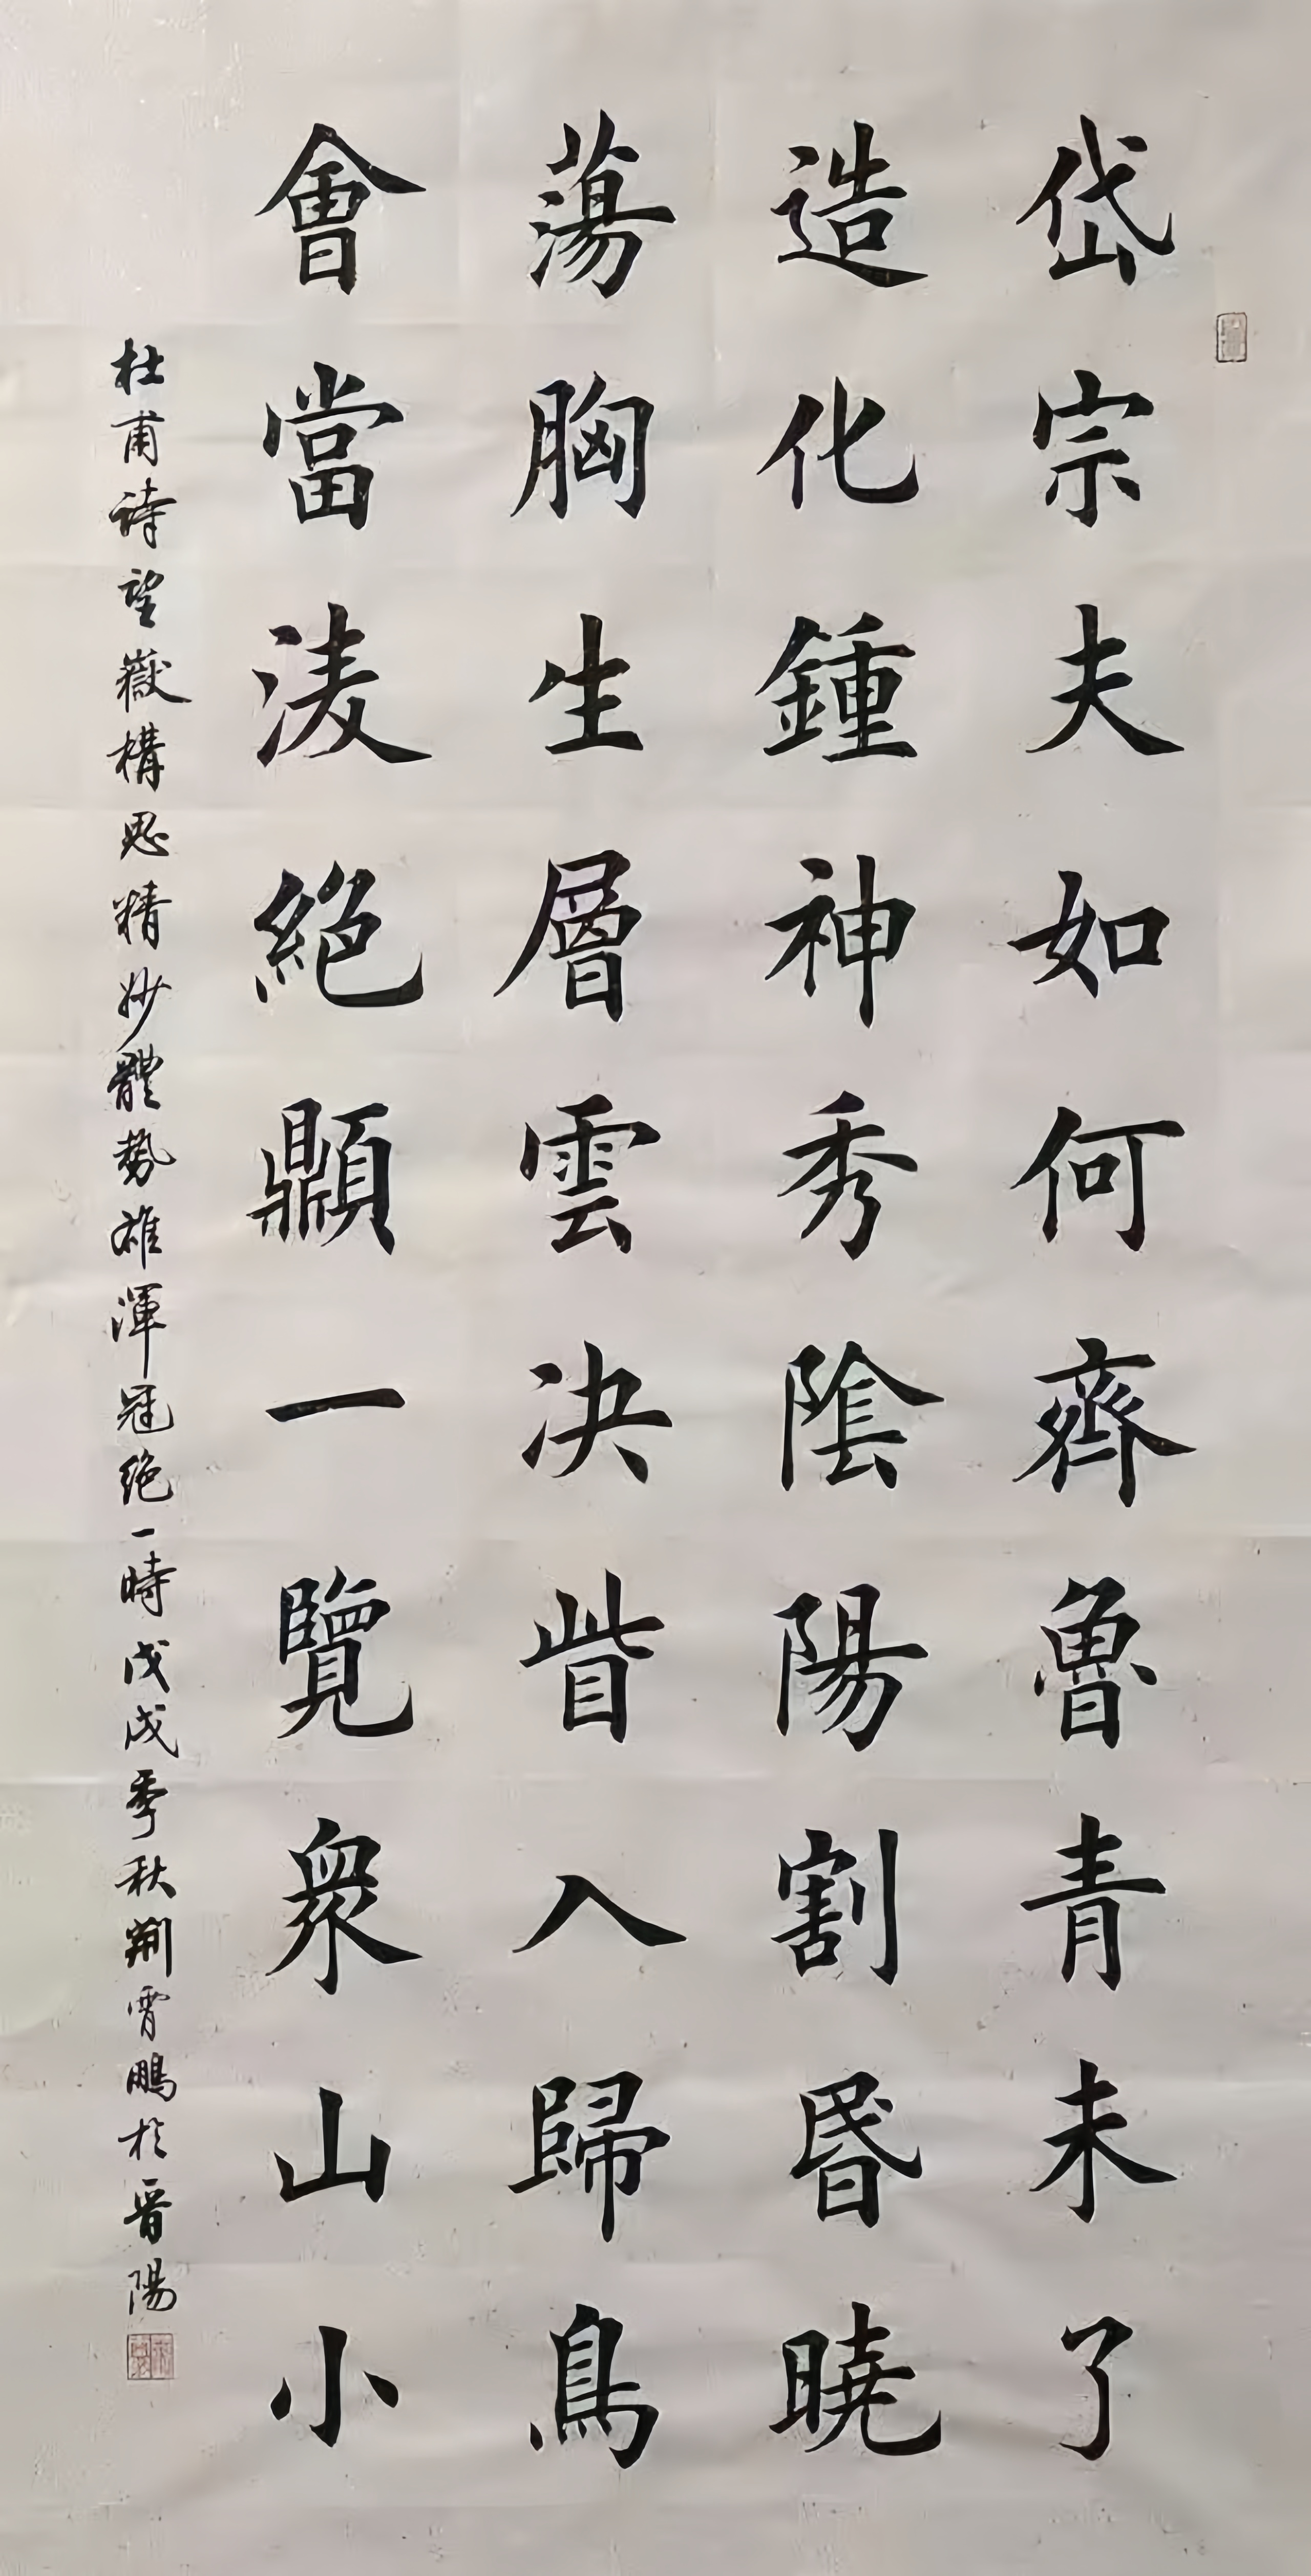 岱宗夫如何齊魯青未了
造化鍾神秀陰陽割昏曉
蕩胸生層雲决眥入歸鳥
會當淩絕顛一覽衆山小
杜甫詩望嶽構思精妙體勢雄渾冠绝一時戊戌季秋荆霄鵬於晉陽